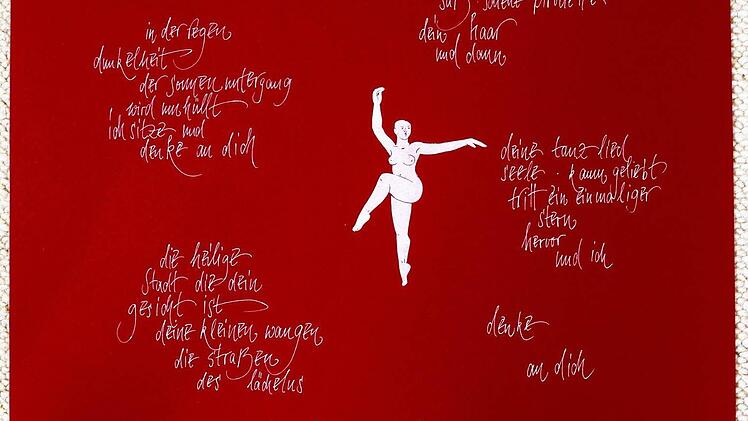 in der regen
dunkelheit
der sonnenuntergang
wird umhüllt
ich sitze und
denke an dich
dein haar
und dann
deine tanz lied
seele . kaum geliebt
tritt ein einmaliger
stern
hervor
und ich
die heilige
stadt die dein
gesicht ist
deine kleinen wangen
die straßen
des lächelns
denke
an dich